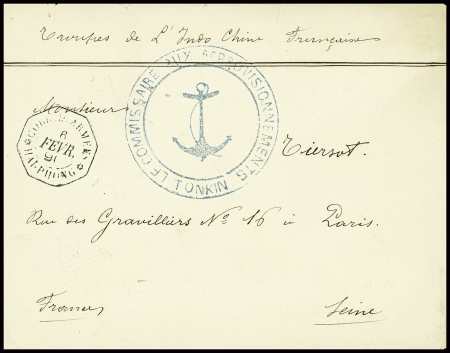 Troupes de L'Indo Chine Française
LE COMMISSAIRE AUX APPROVISIONNEMENTS
TONKIN
Monsieur
CORR. D. ARMEES
6
FEVR.
91
HAI-PHONG
Tiersot.
Rue des Gravilliers No 16 à Paris.
France
Seine